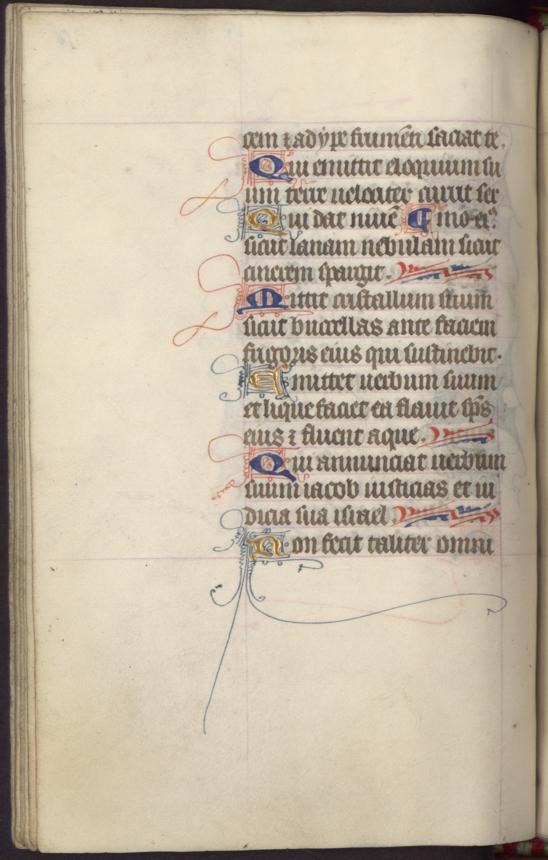 cem ⁊ adype frumēti saciat te.
Qui emittit eloquium su
um terre uelociter currit ser
Qui dat niuē ¶ mo eiꝰ.
sicut lanam nebulam sicut
cinerem spargit.
Mittit cristallum suum
sicut buccellas ante faciem
frigoris eius quis sustinebit.
Emittet uerbum suum
et liquefaciet ea flauit sps̄
eius ⁊ fluent aque.
Qui annunciat uerbum
suum iacob iusticias et iu
dicia sua israel.
Non fecit taliter omni